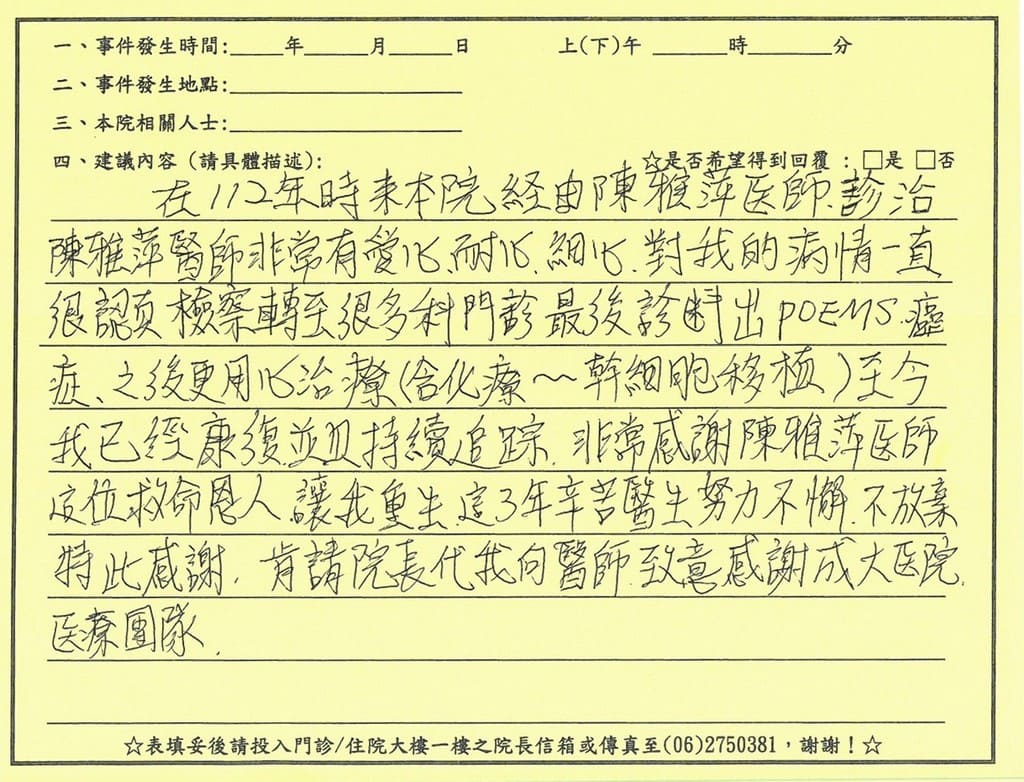 一、事件發生時間:____年____月____日 上(下)午 ____時____分
二、事件發生地點:____
三、本院相關人士:____
四、建議內容（請具體描述): ☆是否希望得到回覆 : □是 □否
在112年時来本院 経由陳雅萍医師.診治
陳雅萍醫師非常有愛心.耐心.細心.對我的病情一直
很認真檢察轉至很多科門診最後診断出POEMS.癌
症、之後更用心治療(含化療～幹細胞移植)至今
我已經康復並且持續追踪.非常感謝陳雅萍医師
這位救命恩人 讓我重生.這3年辛苦醫生努力不懈.不放棄
特此感謝. 肯請院長代我向醫師.致意感謝成大医院.
医療團隊.
☆表填妥後請投入門診/住院大樓一樓之院長信箱或傳真至(06)2750381，謝謝！☆